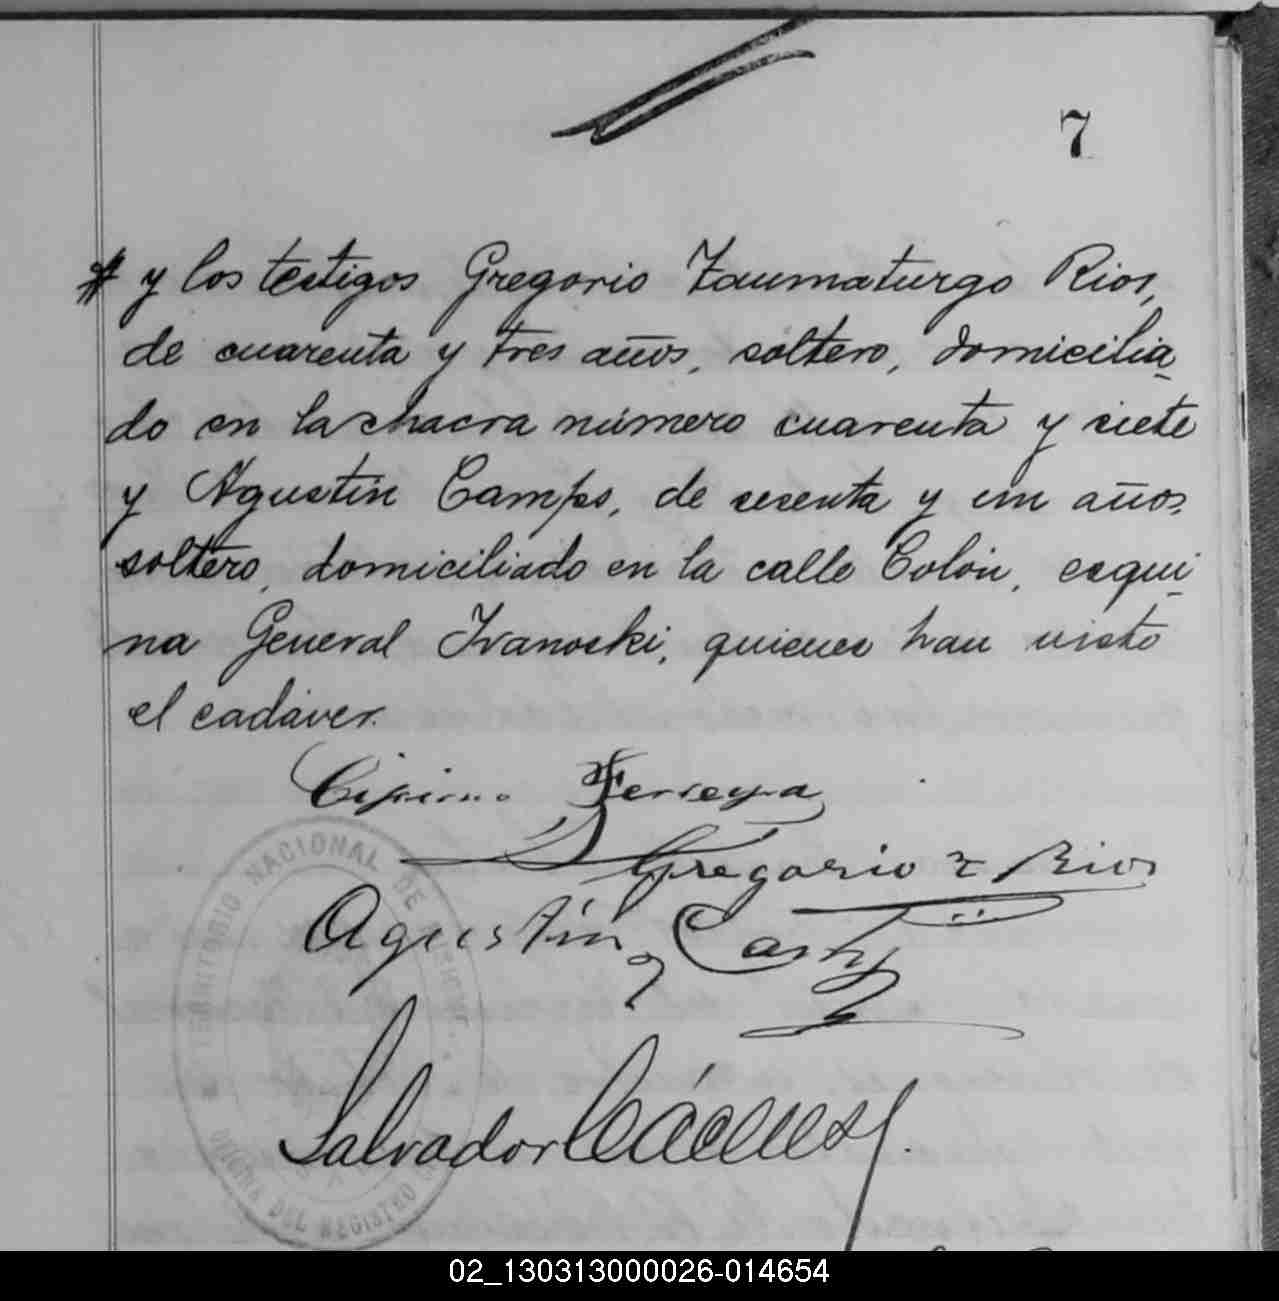 7
# y los testigos Gregorio Taumaturgo Rios,
de cuarenta y tres años, soltero, domicilia
do en la chacra número cuarenta y siete
y Agustin Camps, de sesenta y un años,
soltero, domiciliado en la calle Colón, esqui
na General Ivanoski, quienes han visto
el cadáver.
Cipriano Ferreyra
Gregorio T Rios
Agustín Camps
Salvador Cáceres
TERRITORIO NACIONAL DE
DEL REGISTRO
02_130313000026-014654